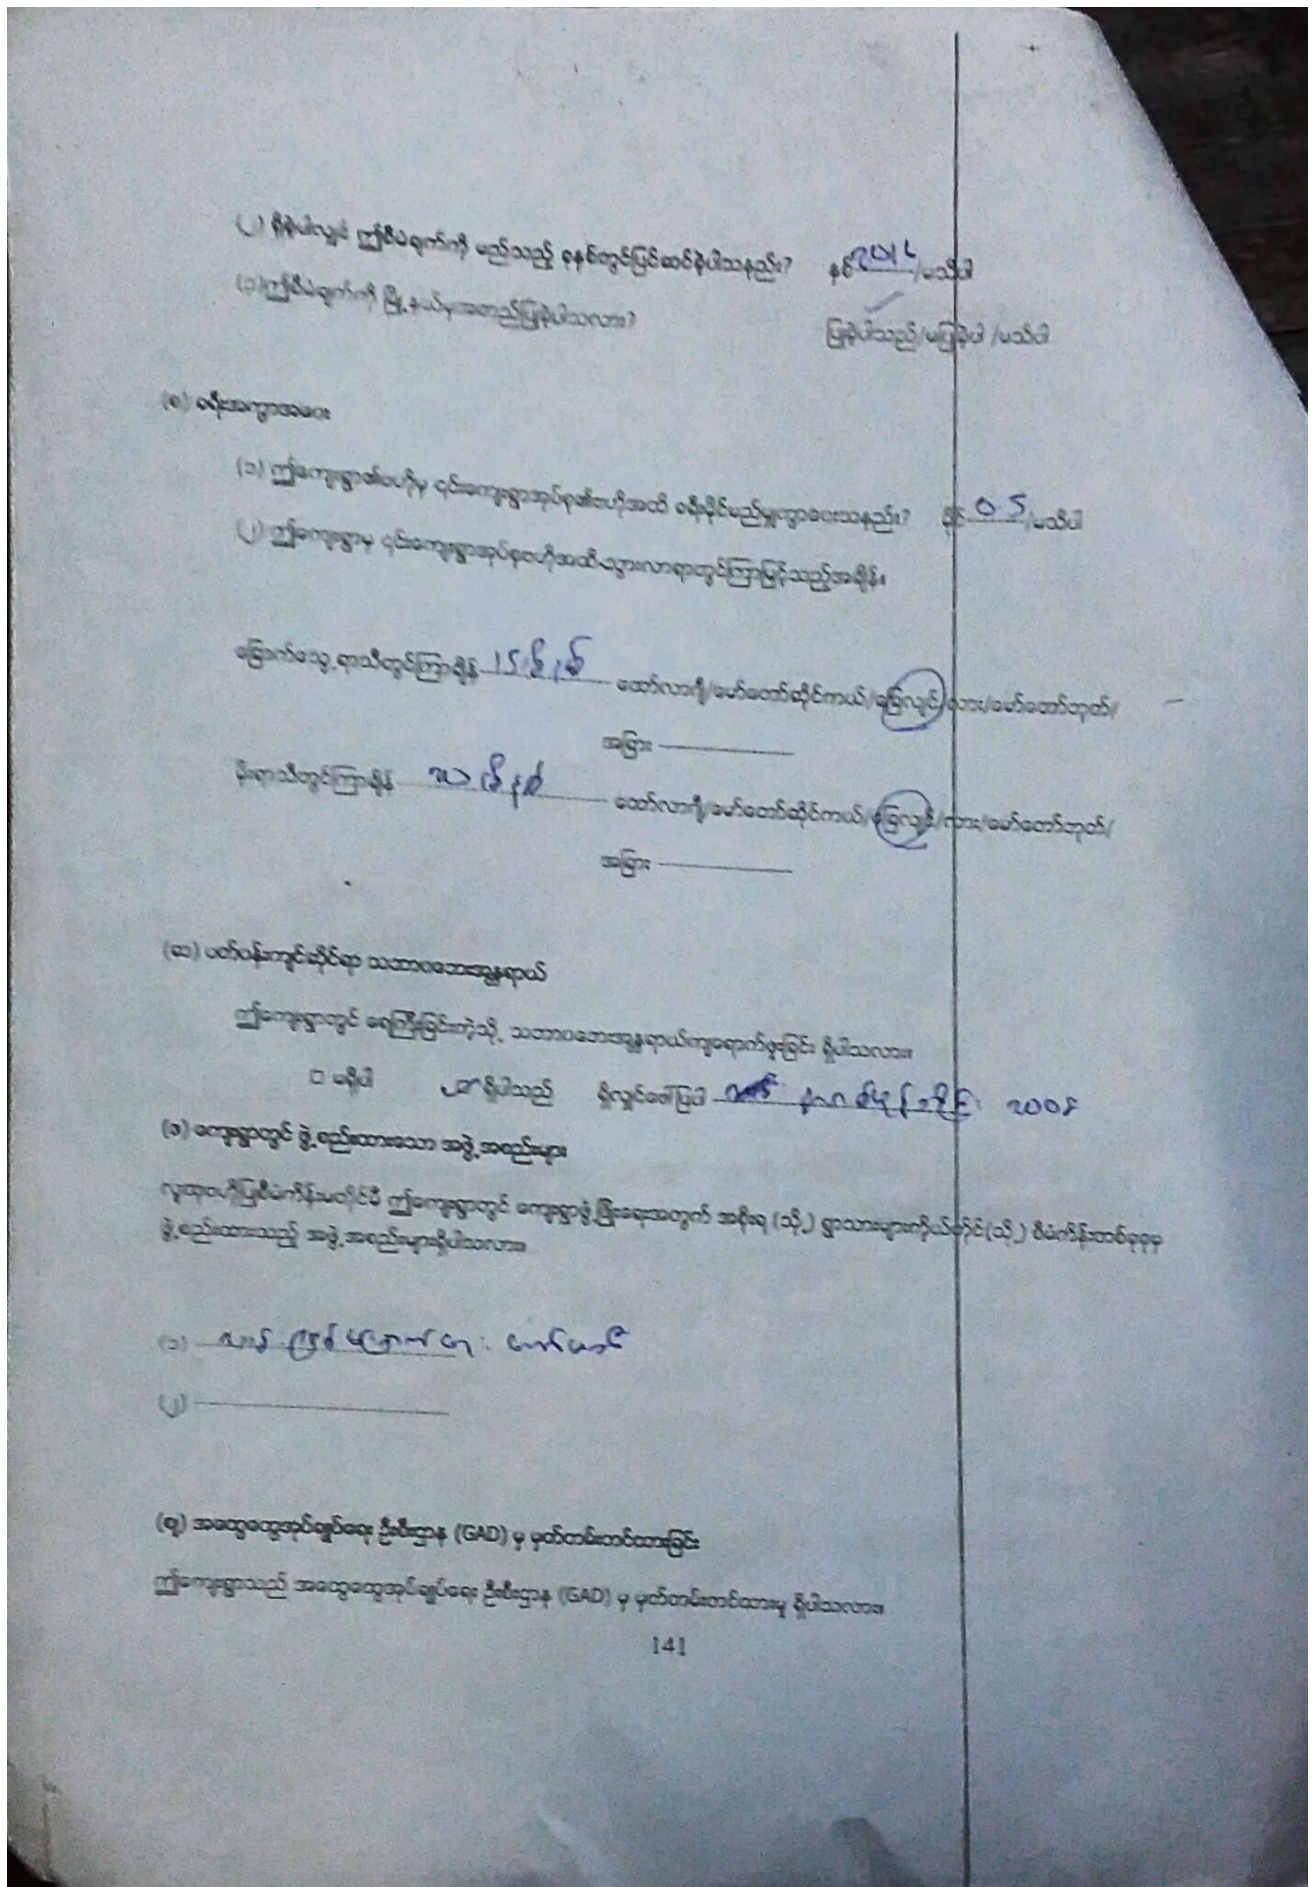 (၂) ရှိခဲ့ပါလျှင် ဤစီမံချက်ကို မည်သည့် ခုနှစ်တွင်ပြင်ဆင်ခဲ့ပါသနည်း? နှစ် /မသိပါ
(၃)ဤစီမံချက်ကို မြို့နယ်မှအတည်ပြုခဲ့ပါသလား? ပြုခဲ့ပါသည်/မပြုခဲ့ပါ /မသိပါ
(စ) ခရီးအကွာအဝေး
(၁) ဤကျေးရွာ၏ဗဟိုမှ ၎င်းကျေးရွာအုပ်စု၏ဗဟိုအထိ ခရီးမိုင်မည်မျှကွာဝေးသနည်း? မိုင် 0 5 /မသိပါ
(၂) ဤကျေးရွာမှ ၎င်းကျေးရွာအုပ်စုဗဟိုအထိသွားလာရာတွင်ကြာမြင့်သည့်အချိန်။
ခြောက်သွေ့ရာသီတွင်ကြာချိန် 15 မိနစ် ထော်လာဂျီ/မော်တော်ဆိုင်ကယ်/ခြေလျင်/ကား/မော်တော်ဘုတ်/
အခြား
မိုးရာသီတွင်ကြာချိန် ၂၀ မိနစ် ထော်လာဂျီ/မော်တော်ဆိုင်ကယ်/ခြေလျင်/ကား/မော်တော်ဘုတ်/
အခြား
(ဆ) ပတ်ဝန်းကျင်ဆိုင်ရာ သဘာဝဘေးအန္တရာယ်
ဤကျေးရွာတွင် ရေကြီးခြင်းကဲ့သို့ သဘာဝဘေးအန္တရာယ်ကျရောက်ဖူးခြင်း ရှိပါသလား။
□ မရှိပါ □ ရှိပါသည် ရှိလျှင်ဖော်ပြပါ နာဂစ်မုန်တိုင်း ၂၀၀၈
(ဇ) ကျေးရွာတွင် ဖွဲ့စည်းထားသော အဖွဲ့အစည်းများ
လူထုဗဟိုပြုစီမံကိန်းမတိုင်မီ ဤကျေးရွာတွင် ကျေးရွာဖွံ့ဖြိုးရေးအတွက် အစိုးရ (သို့) ရွာသားများကိုယ်တိုင်(သို့) စီမံကိန်းတစ်ခုခုမှ
ဖွဲ့စည်းထားသည့် အဖွဲ့အစည်းများရှိပါသလား။
(၁)
(၂)
(ဈ) အထွေထွေအုပ်ချုပ်ရေး ဦးစီးဌာန (GAD) မှ မှတ်တမ်းတင်ထားခြင်း
ဤကျေးရွာသည် အထွေထွေအုပ်ချုပ်ရေး ဦးစီးဌာန (GAD) မှ မှတ်တမ်းတင်ထားမှု ရှိပါသလား။
141